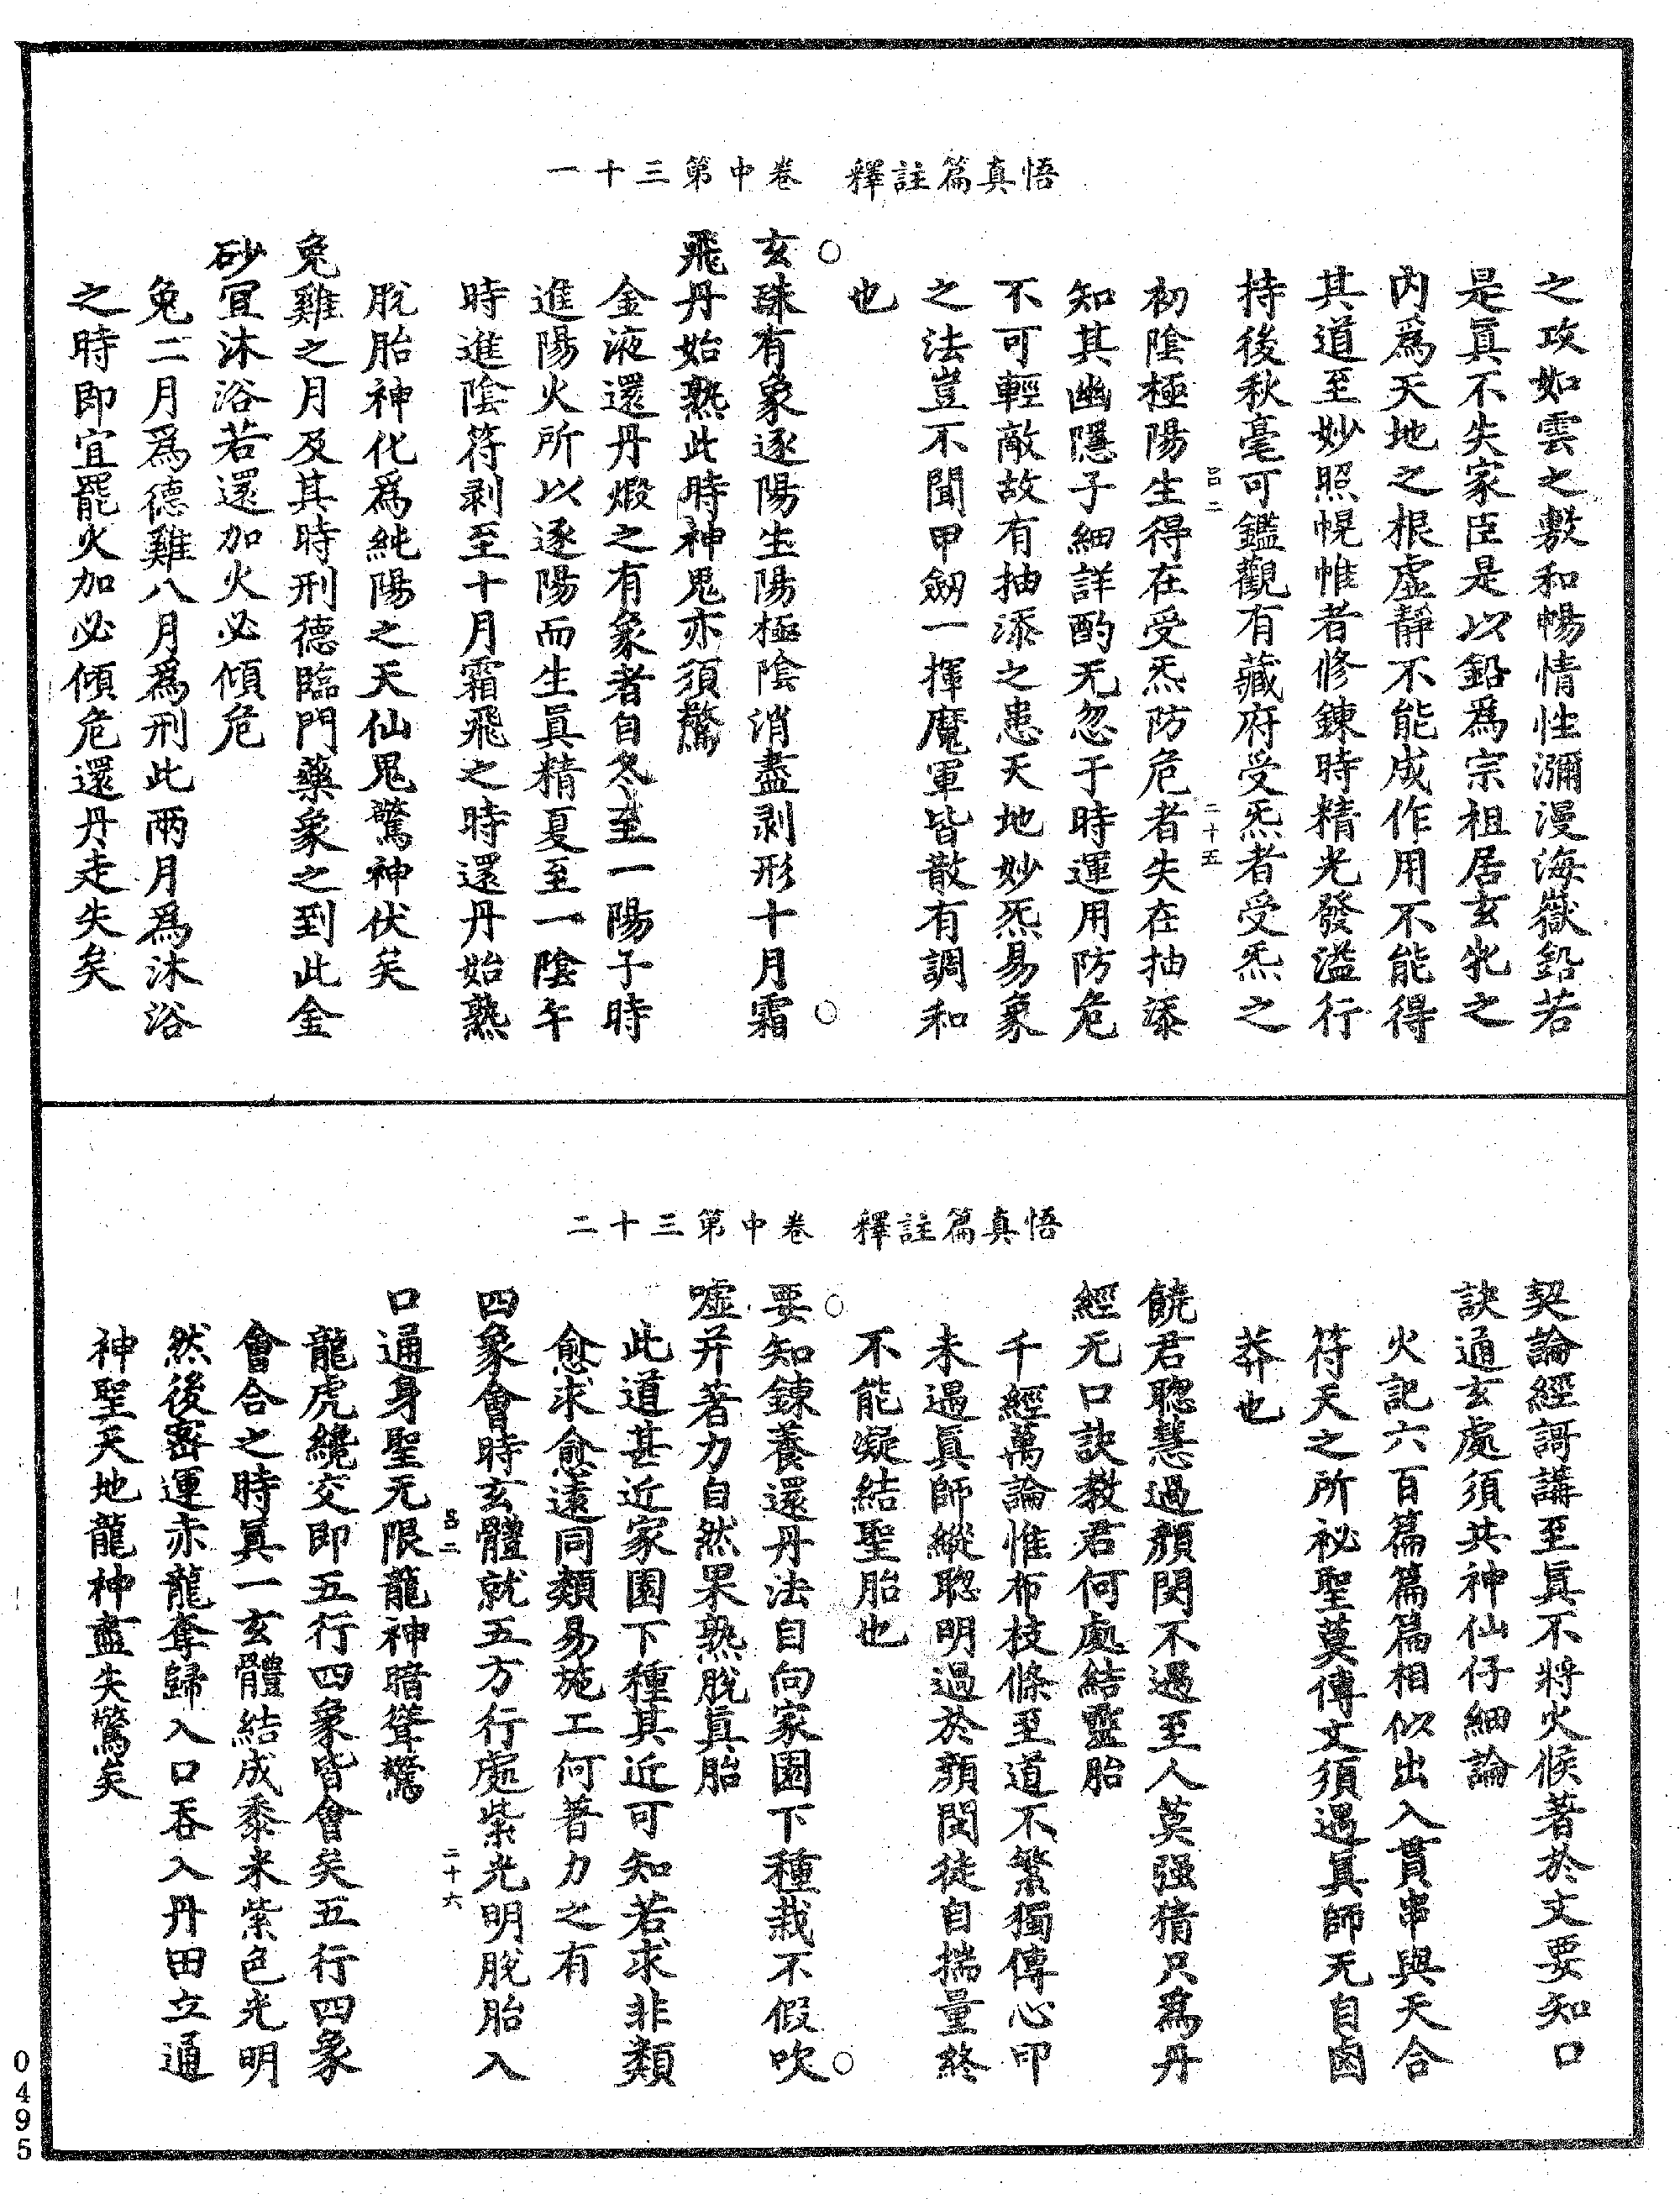 悟真篇註釋　卷中第三十一
之攻如雲之敷和暢情性瀰漫海嶽鉛若
是眞不失家臣是以鉛爲宗祖居玄牝之
內爲天地之根虛靜不能成作用不能得
其道至妙照幌帷者修鍊時精光發溢行
持後秋毫可鑑觀有藏府受炁者受炁之
吕二　二十五
初陰極陽生得在受炁防危者失在抽添
知其幽隱子細詳酌无忽于時運用防危
不可輕敵故有抽添之患天地妙炁易象
之法豈不聞甲劒一揮魔軍皆散有調和
也
○玄珠有象逐陽生陽極陰消盡剥形十月霜○
飛丹始熟此時神鬼亦須驚
金液還丹煅之有象者自冬至一陽子時
進陽火所以逐陽而生眞精夏至一陰午
時進陰符剥至十月霜飛之時還丹始熟
脫胎神化爲純陽之天仙鬼驚神伏矣
兔雞之月及其時刑德臨門藥象之到此金
砂宜沐浴若還加火必傾危
兔二月爲德雞八月爲刑此兩月爲沐浴
之時即宜罷火加必傾危還丹走失矣
悟真篇註釋　卷中第三十二
契論經謌講至眞不將火候著於文要知口
訣通玄處須共神仙仔細論
火記六百篇篇篇相似出入貫串與天合
符天之所祕聖莫傳文須遇眞師无自鹵
莽也
饒君聦慧過顏閔不遇至人莫强猜只爲丹
經无口訣教君何處結靈胎
千經萬論惟布枝條至道不繁獨傳心印
未遇眞師縱聦明過於顏閔徒自揣量終
不能凝結聖胎也
○要知鍊養還丹法自向家園下種栽不假吹○
嘘并著力自然果熟脫眞胎
此道甚近家園下種其近可知若求非類
愈求愈遠同類易施工何著力之有
四象會時玄體就五方行處紫光明脫胎入
吕二　二十六
口通身聖无限龍神暗聳驚
龍虎纔交即五行四象皆會矣五行四象
會合之時眞一玄體結成黍米紫色光明
然後密運赤龍奪歸入口吞入丹田立通
神聖天地龍神盡失驚矣
0495